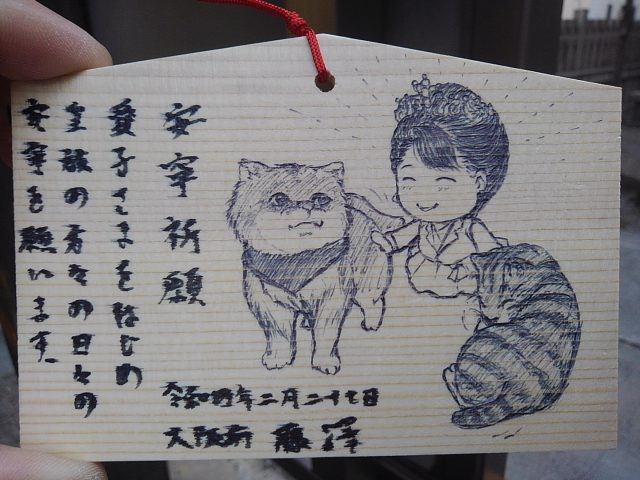 安寧祈願
愛子さまをはじめ
皇族の方々の日々の
安寧を願います。
令和四年二月二十七日
大阪府 藤澤